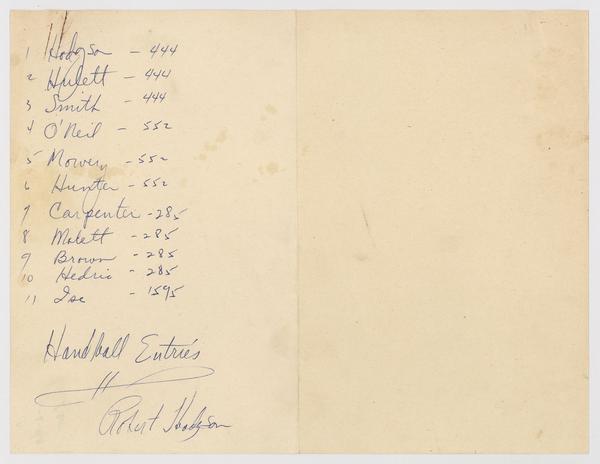 1 Hodgson - 444
2 Hulett - 444
3 Smith - 444
4 O'Neil - 552
5 Mowery - 552
6 Hunter - 552
7 Carpenter - 285
8 Molett - 285
9 Brown - 285
10 Hedric - 285
11 Ise - 1595
Handball Entries
Robert Hodgson